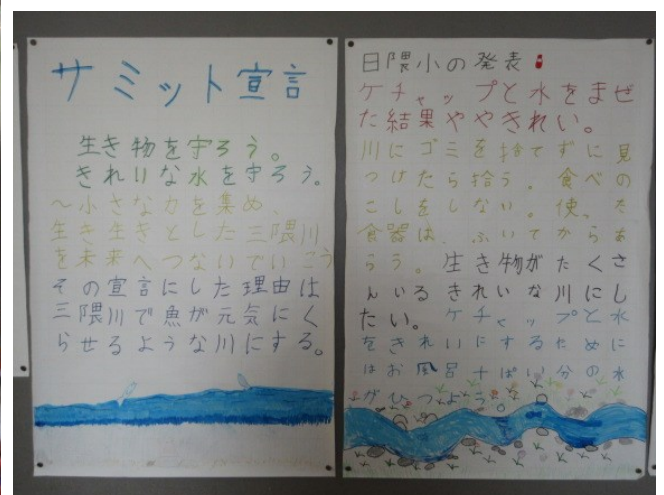 サミット宣言
生き物を守ろう。
きれいな水を守ろう。
～小さな力を集め、
生き生きとした三隈川
を未来へつないでいこう
その宣言にした理由は
三隈川で魚が元気にく
らせるような川にする。
日隈小の発表
ケチャップと水をまぜ
た結果ややきれい。
川にゴミを捨てずに見
つけたら拾う。食べの
こしをしない。使った
食器は、ふいてからあ
らう。生き物がたくさ
んいるきれいな川にし
たい。ケチャップと水
をきれいにするために
はお風呂十ぱい分の水
がひつよう。